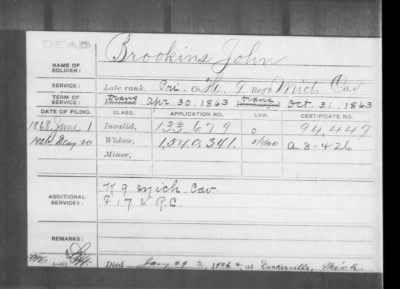 DEAD
NAME OF SOLDIER: Brookins, John
SERVICE: Late rank, Pri. Co. K, 9 Reg't Mich Cav
TERM OF SERVICE: Enlisted trans Apr. 30, 1863 Discharged trans Oct. 31, 1863
DATE OF FILING. CLASS. APPLICATION NO. LAW. CERTIFICATE NO.
1868 June 1 Invalid, 133.679 0 94,447
May 20 Widow, 1,040,341 A-8-4-26
Minor,
ADDITIONAL SERVICES: K 9 Mich. Cav.
F 17 V.R.C.
REMARKS:
Died Jan 29 at Deckerville, Mich.